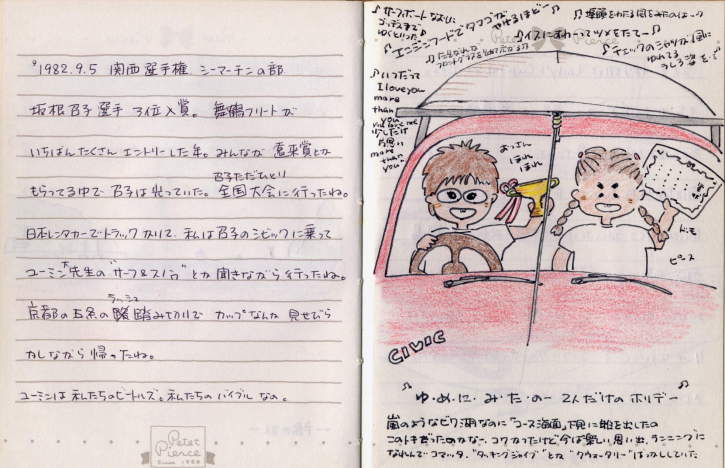 1982.9.5 関西選手権 シーマーチンの部
坂根乃子選手 3位入賞。 舞鶴フリートが
いちばんたくさん エントリーした年。みんなが 賞とか
乃子ただひとり
もらってる中で 乃子は光っていた。全国大会に行ったね。
日本レンタカーでトラックかりて、私は乃子のシビックに乗って
ユーミン大先生の"サーフ&スノウ"とか聞きながら行ったね。
ラッシュ
京都の五条の 踏みきりで カップなんか 見せびら
かしながら 帰ったね。
ユーミンは私たちのビートルズ。私たちのバイブル なの。
Peter Pierce
Since 1988
♪サーフボード なぶして
ゆくといった♪
♪エンジンフードでタマゴが やけるほど…
♪イスにすわってツメをたて…♪
♪チェックのシャツが風に
ゆれてる
うしろ姿を…♪
♪いつだって
I love you
more
than
you
少しだけ
more
than
you
おっさん
ほれ
ほれ
ドモ
ピース
CIVIC
♪ ゆ・め・に・み・た・の― 2人だけの ホリデー ♪
嵐のようなビワ湖なのに"コース海面"下見に艇を出したの
このトキだったのかな…。コワかったけど今は楽しい思い出。ランニングに
なれんでコマッタ。"タッキングジャイブ"とか"クウォータリー"はへんししていた